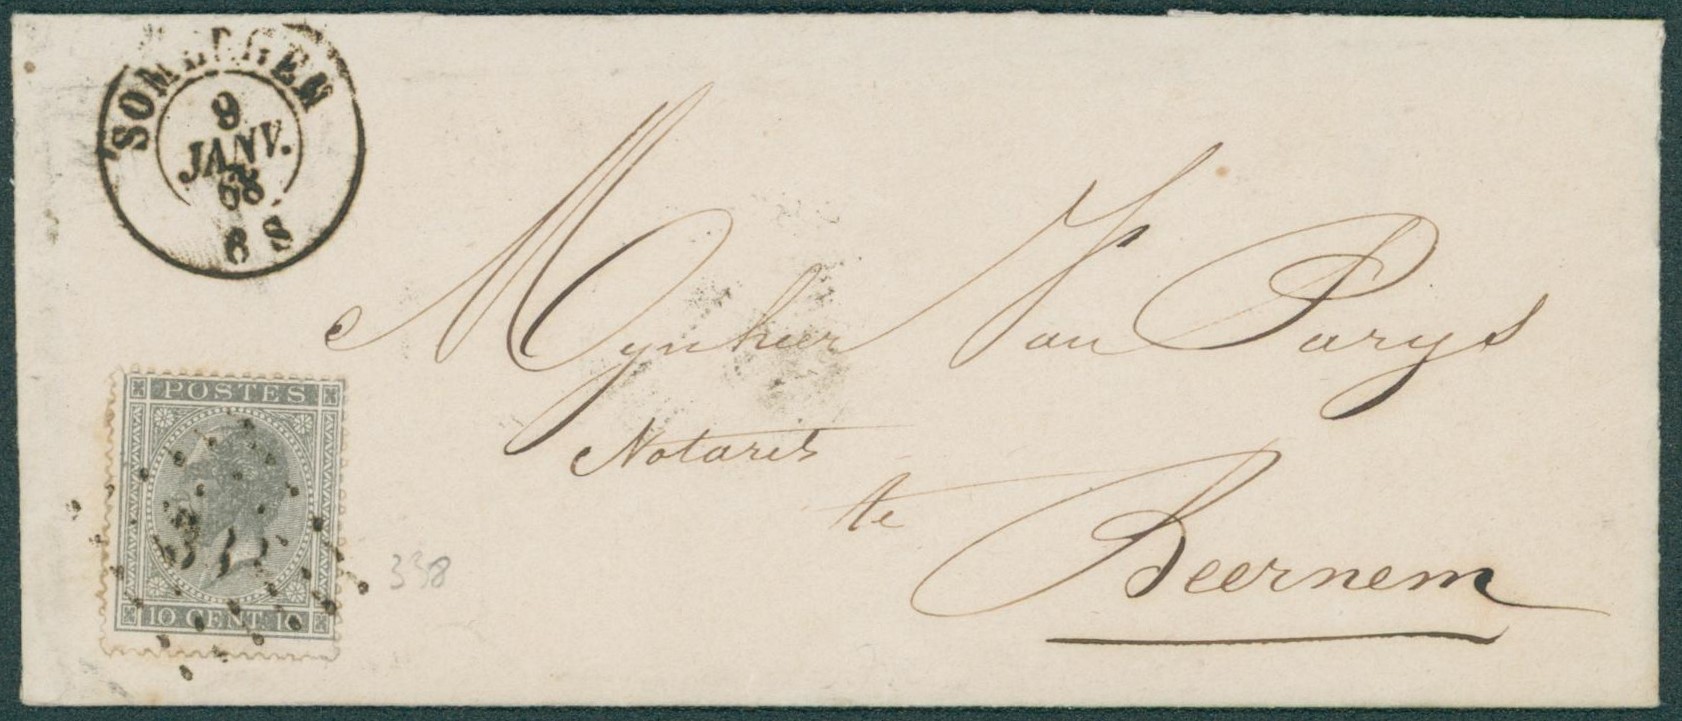 SOMERGEM
9
JANV.
68
6 S
Mynheer Van Parys
Notaris
te
Beernem
POSTES
10 CENT. 10
338